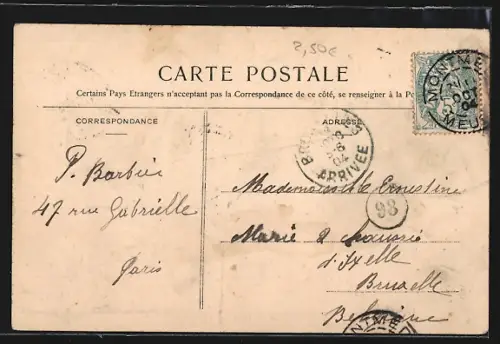 2,50€
CARTE POSTALE
Certains Pays Etrangers n'acceptant pas la Correspondance de ce côté, se renseigner à la Po
CORRESPONDANCE
ADRESSE
MONTME
MEUS
ARRIVEE
P. Barbier
47 rue Gabrielle
Paris
Mademoiselle Ernestine
93
Marie
d'Ixelle
Bruxelle
Belgique